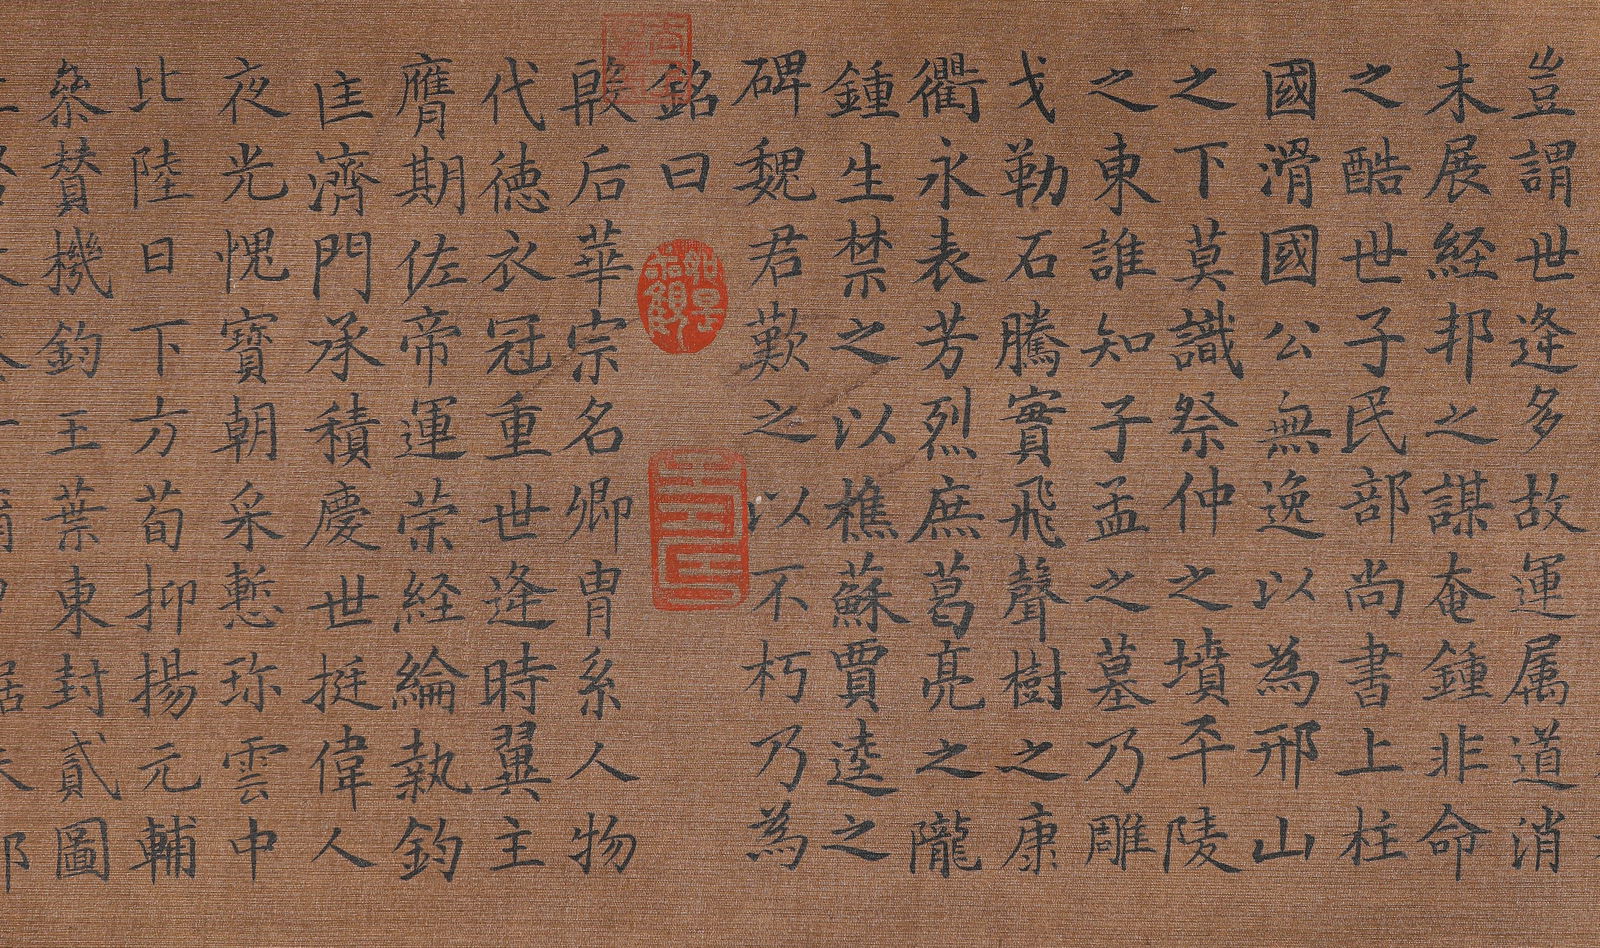 豈謂世逄多故運属道消
未展経邦之謀奄鍾非命
之酷世子民部尚書上柱
國滑國公無逸以為邢山
之下莫識祭仲之墳平陵
之東誰知子孟之墓乃雕
戈勒石騰實飛聲樹之康
衢永表芳烈庶葛亮之隴
鍾生禁之以樵蘇賈逵之
碑魏君歎之以不朽乃為
銘曰
殷后華宗名卿胄系人物
代德衣冠重世逄時翼主
膺期佐帝運荣経綸執鈞
匡濟門承積慶世挺偉人
夜光愧寶朝采慙珎雲中
比陸日下方荀抑揚元輔
叅賛機鈞王葉東封貳圖